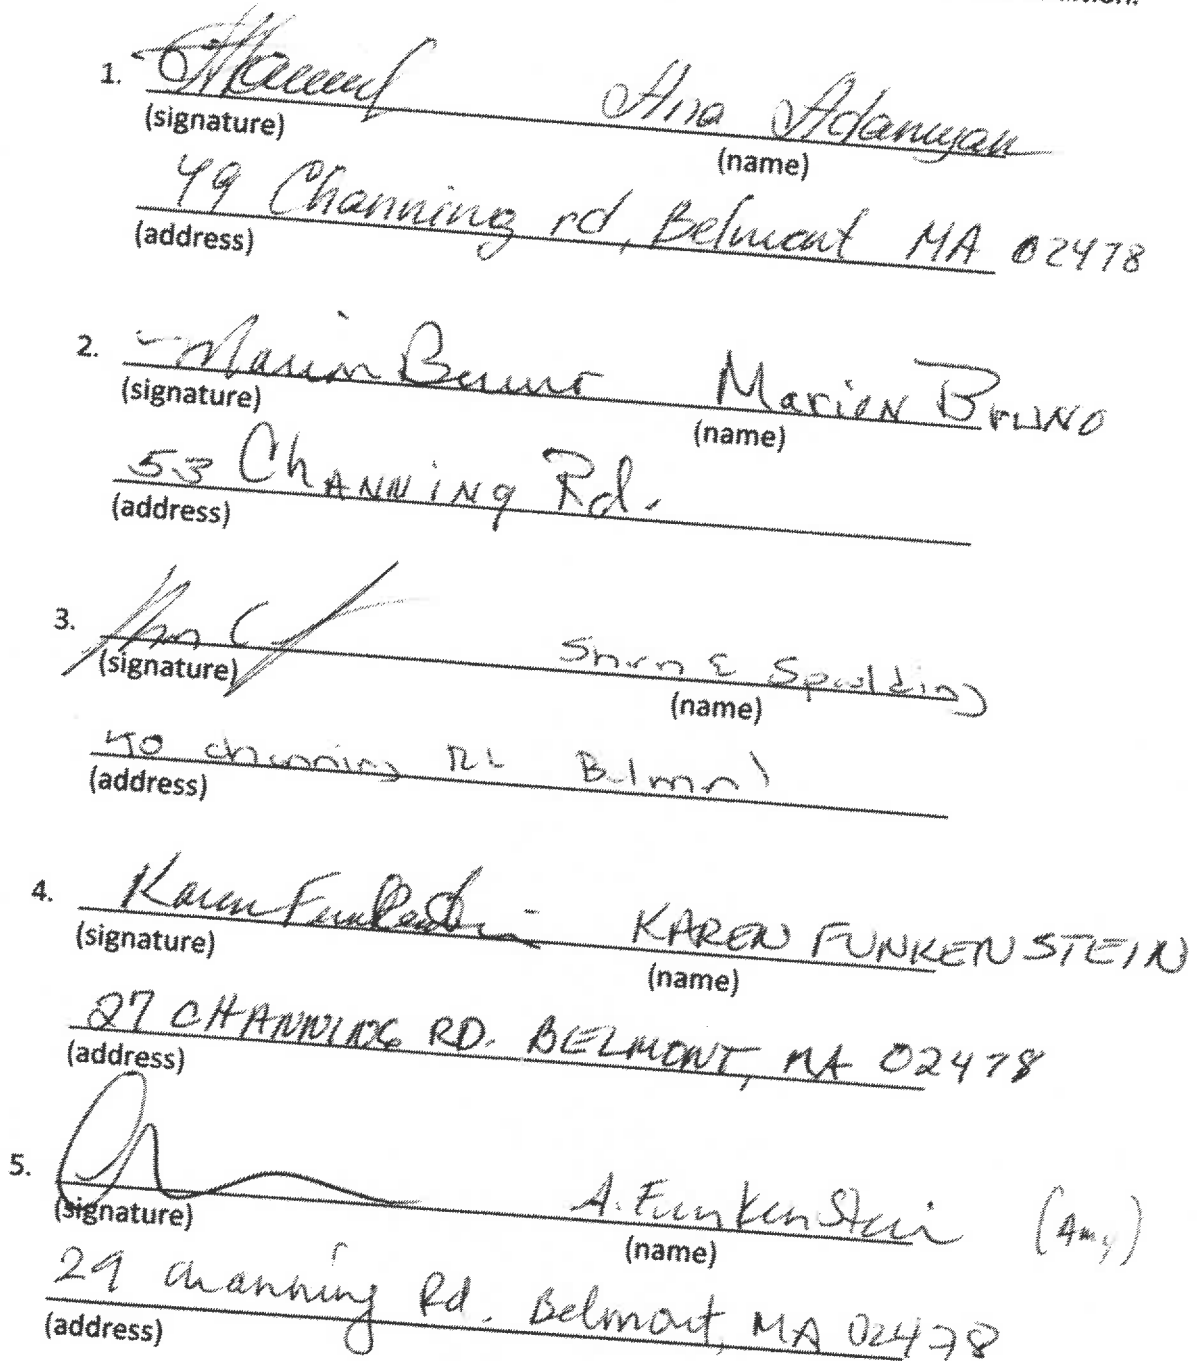 1. Ana Adamyan
(signature) (name)
49 Channing rd, Belmont MA 02478
(address)
2. Marion Bruno Marion Bruno
(signature) (name)
53 Channing Rd.
(address)
3. Spaulding
(signature) (name)
40 channing Rd Belmont
(address)
4. Karen Funkenstein KAREN FUNKENSTEIN
(signature) (name)
27 CHANNING RD. BELMONT, MA 02478
(address)
5. A. Funkenstein (Amy)
(signature) (name)
29 Channing Rd. Belmont, MA 02478
(address)